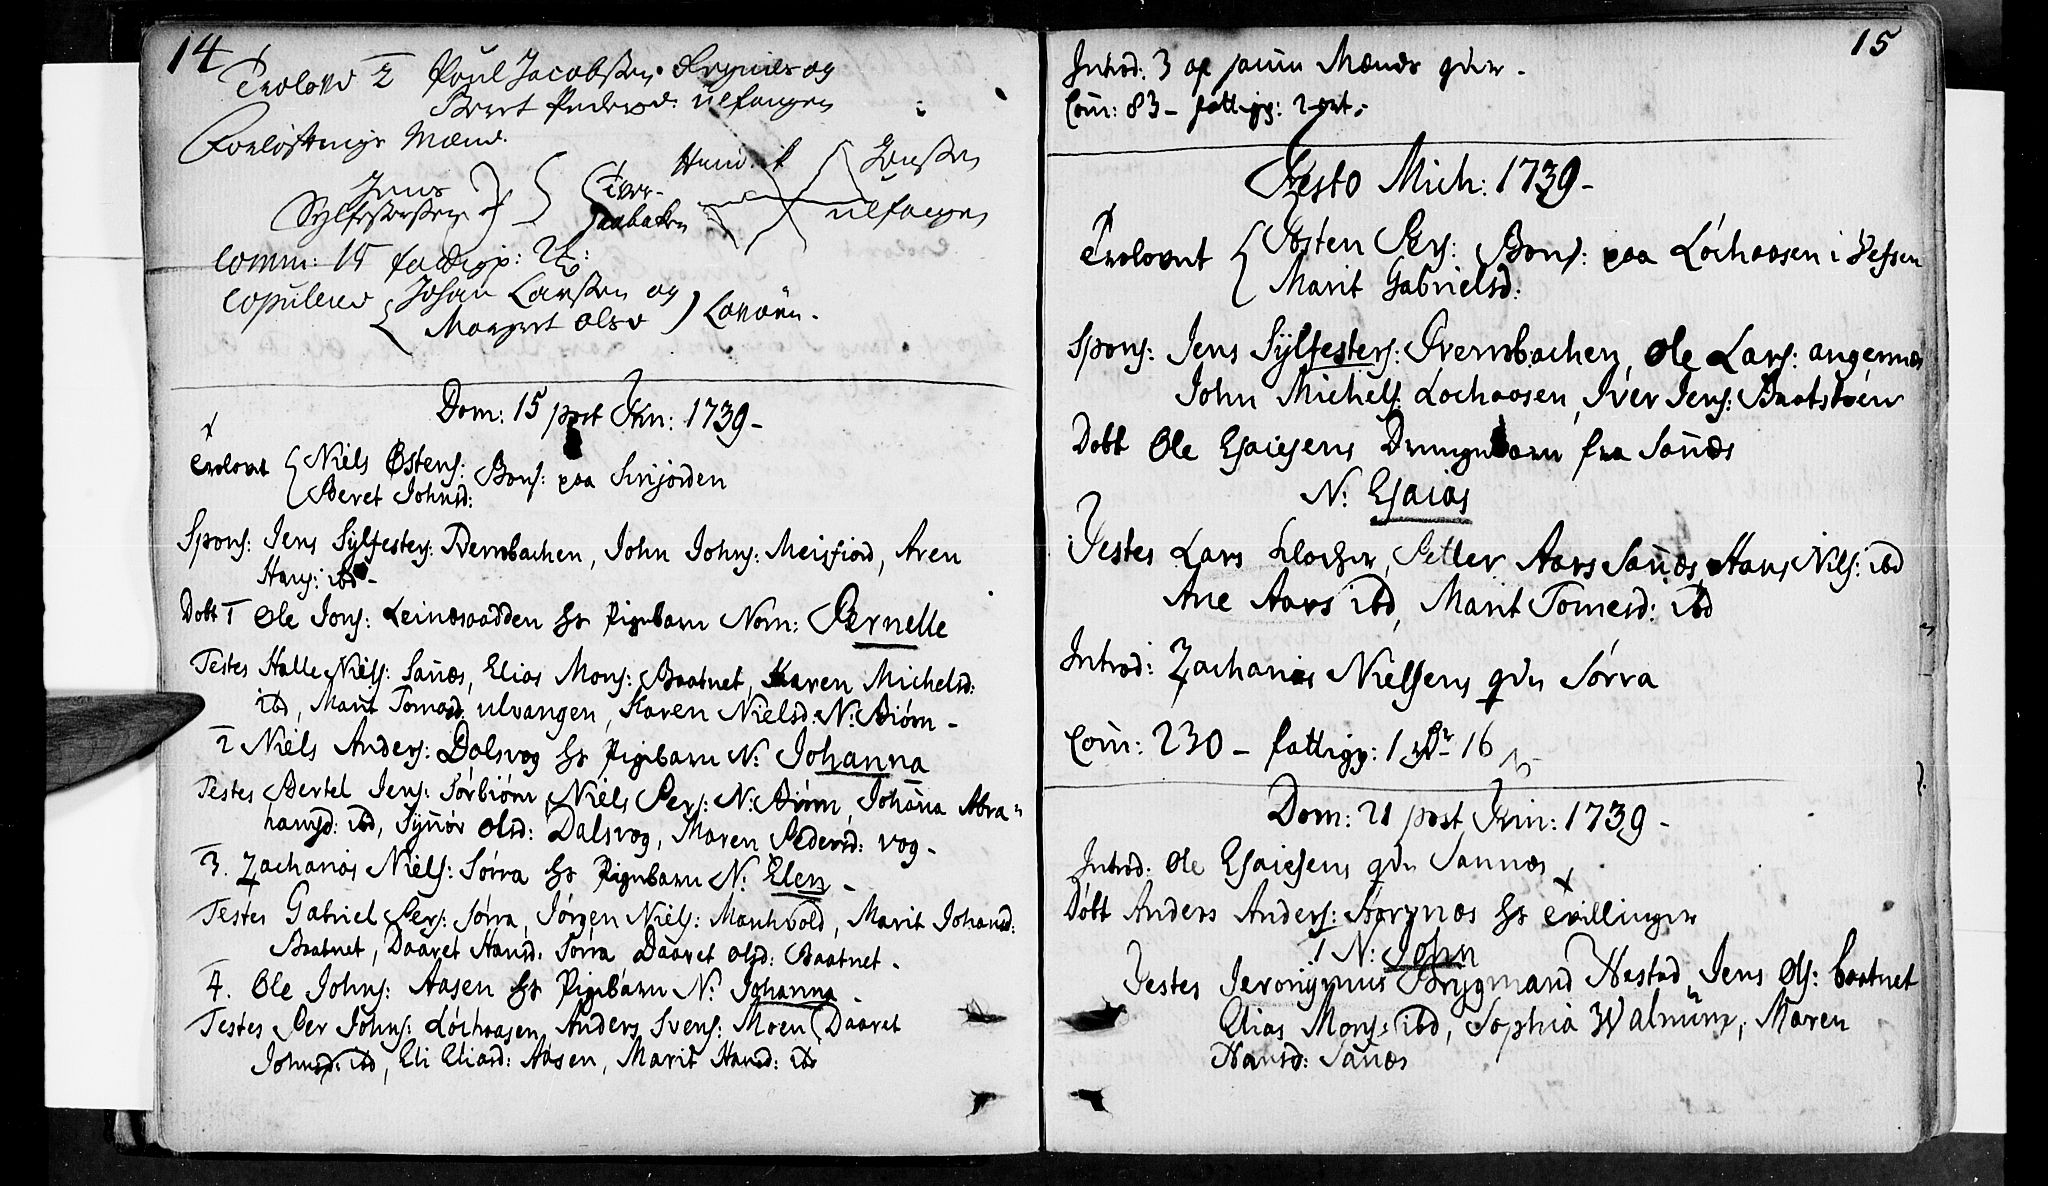 14
Trolovd 2 Poul Jacobsen og
Beret Pedersd: ulfangen
Forløftnings Mænd.
Jens Hendrik Jensen
Sylfestersen Tver-
baken ulfangen
Comm: 15 fattigp: 2
Copulered Johan Larsen og
Margret Olsd
Dom: 15 post Trin: 1739-
Trolovt Niels Østens: Bons: paa Sirijorden
Beret Johnsd:
Spons: Jens Sylfesters: Tverrbachen, John Johns: Meisfiord, Aren
Hans: ibd-
Døbt 1 Ole Jons: Leinesodden hs Pigebarn Nom: Pernelle
Testes Halle Niels: Sañæs, Elias Mons: Baatnet, Karen Michelsd:
ibd, Marit Tomasd ulvangen, Karen Nielsd: N: Biórn-
2 Niels Anders: Dalsvog hs Pigebarn N: Johanna
Testes Bertel Jens: Sørbiórn, Niels Pers: N: Biórn, Johaña Abra=
hamsd: ibd, Syñøv Olsd: Dalsvog, Maren Pedersd: vog-
3. Zacharias Niels: Sórra hs Pigebarn N: Elen-
Testes Gabriel Pers: Sórra, Jórgen Niels: Monhvold, Marit Johansd:
Baatnet, Daaret Hansd: Sorra Daaret Olsd: Baatnet-
4. Ole Johns: Aasen hs Pigebarn N: Johanna-
Testes Per Johns: Lóchaasen, Anders Svens: Moen, Daaret
Johnsd: ibd, Eli Eliasd: Aasen, Marit Hansd: ibd
15
Introd: 3 af samme Mænds qver-
Com: 83- fattigp: 2 ort-
Festo Mich: 1739-
Trolovnt Østen Pers: Bons: paa Lóchaasen i Vefsen
Marit Gabrielsd:
Spons: Jens Sylfesters: Tverrbachen, Ole Lars: angernæs
John Michels: Lochaasen, Iver Jens: Baatstóen
Dobt Ole Esaiesens Drengebarn fra Sañæs
N: Esaias
Testes Lars Klocher, Petter Aars Sañæs, Hans Nils: ibd
Ane Aars ibd, Marit Tomesd: ibd
Introd: Zacharias Nielsens qvn Sórra
Com: 230- fattigp: 1 16
Dom: 21 post Trin: 1739-
Introd: Ole Esaiesens qvn Sannæs
Døbt Anders Anders: hs Tvillinger
1 N: John
Testes Jeronymus Brygmand Nestad, Jens Ols: baatnet
Elias Mons: ibd, Sophia Walnum, Maren
Hansd: Sañæs